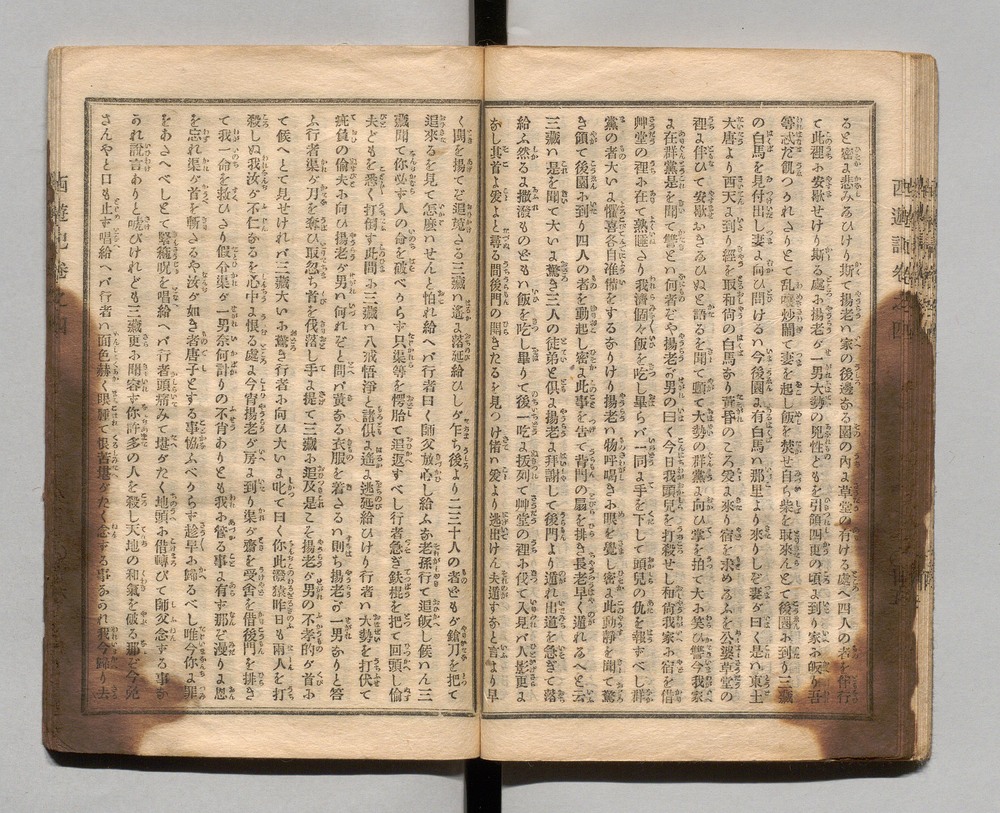 ると密よ悲みるひけり斯て揚老ハ家の後邊なる園の內よ草堂の有ける處へ四人の者を伴行
て此裡ふ安歇せけり斯る處ふ揚老ガ一男大勢の兇性どもを引領四更の頃よ到り家ふ皈り吾
等忒だ飢つかれさりとて乱嚷炒鬧て妻を起し飯を焚せ自ら柴を取來んとて後園ふ到り三藏
の白馬を見付出し妻よ向ひ問けるハ今後園よ有白馬ハ那里より來りしぞ妻ガ曰く是ハ東土
大唐より西天よ到り經を取和尚の白馬なり黃昏のころ爰よ來り宿を求めるふを公婆草堂の
裡よ伴ひて安歇おきるひぬと語るを聞て頓て大勢の群黨よ向ひ掌を拍て大ふ笑ひ今我家
よ在群黨是を聞て何者ぞや揚老ガ男の曰く今日我頭兒を打殺せし和尚我家ふ宿を借
艸堂の裡ふ在て熟睡さり我濟個々飯を吃し畢らバ一同よ手を下して頭兒の仇を報ずべし群
黨の者大いよ懽喜各自准備をするみ密よりけり揚老ハ物呼喝きふ眼を覺し密よ此動靜を聞て驚
き領て後園ふ到り四人の者を動起し密よ此事を告て背門の扇を排き長老早く遁れるへと云
三藏ハ是を聞て大いよ驚き三人の徒弟と俱よ揚老よ拜謝して後門より遁れ出道を急ぎて落
給ふ然るよ撒潑ものどもハ飯を吃し畢りて後一吃よ拔列て艸堂の裡ふ伐て入見バ人影更よ
なし其首よ爰よと尋る間後門の開きたるを見つけ偖ハ爰より逃出けん夫遁すなと言より早
く閧を揚てぞ追蒐ける三藏ハ遙よ落延給ひしが乍ち後より二三十人の者ども鎗刀を把て
追來るを見て怎麽ハせんと怕れ給へバ行者曰く師父放心し給ふな老孫行て追皈し候ハん三
藏聞て你必ず人の命を破べからず只渠等を愕胎て追返すべし行者急ぎ鉄棍を把て回頭し倫
夫どもを悉く打倒す此間ふ三藏ハ八戒悟淨と諸俱よ遙よ逃延給ひけり行者ハ大勢を打伏て
疵負の倫夫ふ向ひ揚老ガ男ハ何れぞと問バ黃なる衣服を着さるハ則ち揚老ガ一男なりと答
ふ行者渠ガ刀を奪ひ取忽ち首を伐落し手よ提て三藏ふ追及是こそ揚老ガ男の不孝的ガ首ふ
て候へとて見せけれバ三藏大いふ驚き行者ふ向ひ大いよ叱て曰く你此潑猿昨日も兩人を打
殺しぬ我汝ガ不仁なるを心中よ恨る處よ今宵揚老ガ房よ到り渠ガ齋を受舍を借後門を排き
て我一命を救ひさり假令渠ガ一男奈何計りの不肖ありとも我ふ管る事よ有す那ぞ漫りよ恩
を忘れ渠ガ首を斬さるや汝ガ如き者唐子とする事協ふべからず趁早ふ歸るべし唯今你よ罪
をあさへべしとて緊箍呪を唱給へバ行者頭痛みて堪ガたく地頭ふ倒轉びて師父念する事な
かれ說言ありと嚷びけれども三藏更ふ聞容す你許多の人を殺し天地の和氣を破る那ぞ今免
さんやと口も止す唱給へバ行者ハ面色赫く眼腫て艱苦堪がたく念する事なかれ我今歸り去
西遊記卷之四